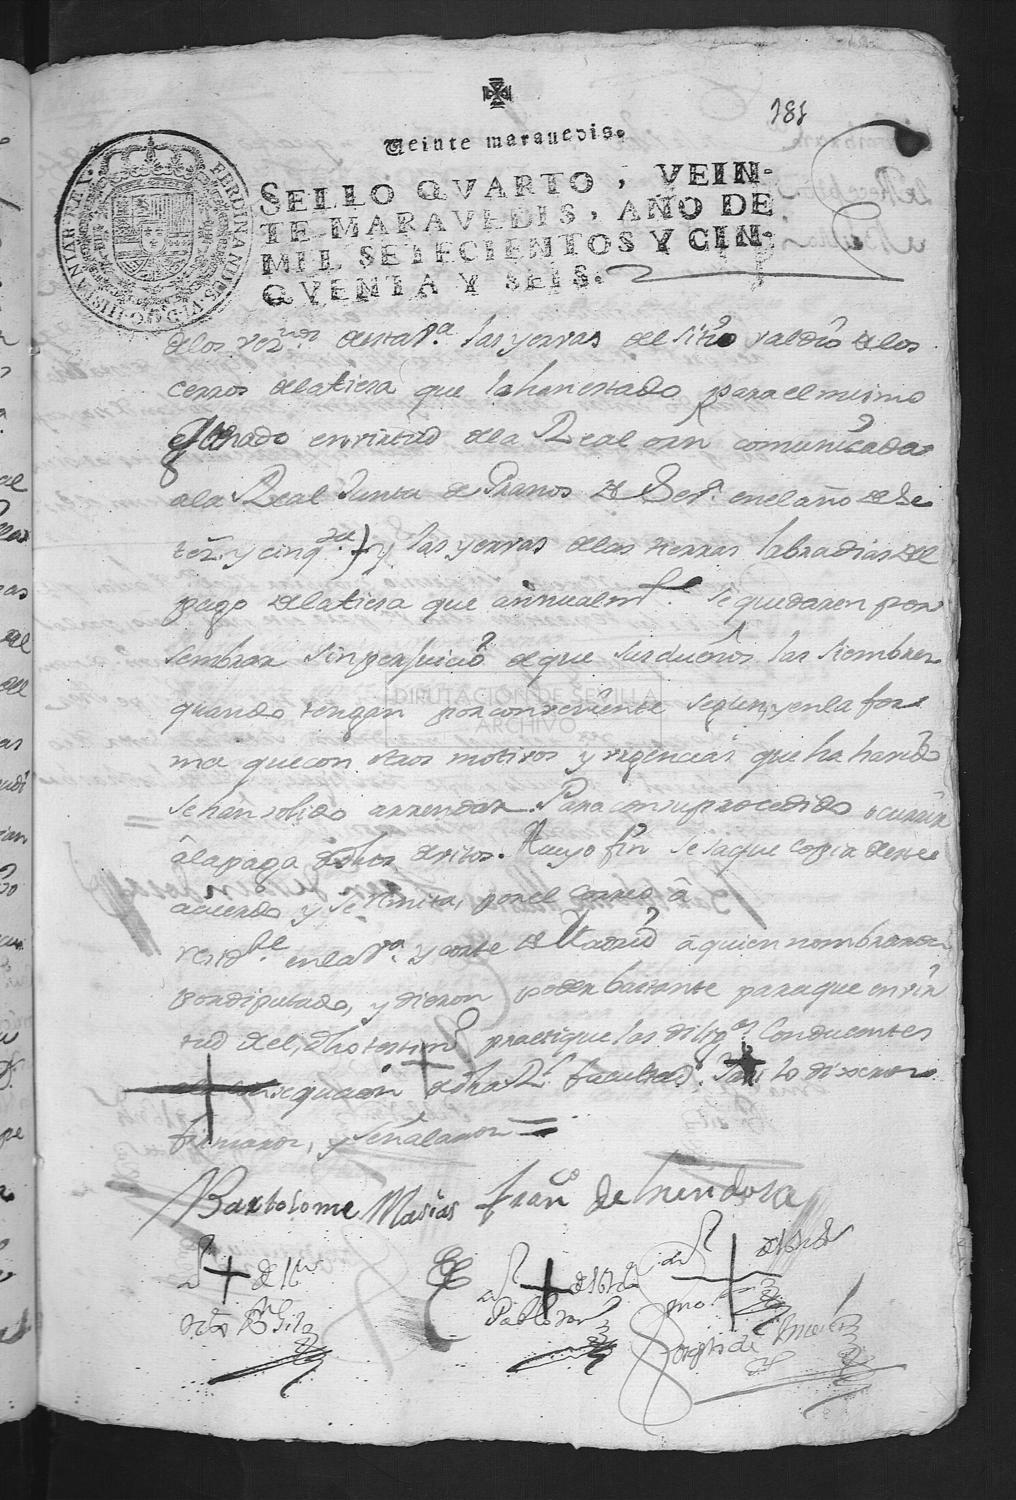 181
Veinte maravedis.
SELLO QVARTO, VEIN-
TE MARAVEDIS, AÑO DE
MIL SETECIENTOS Y CIN-
QVENTA Y SEIS.
FERDINANDUS VI D G HISPANIAR REX
de los vez.nos de esta V.a las yervas del sitio valdio de los
cerros de la tiesa que lo han estado para el mismo
en virtud de la Real orn comunicada
a la Real Junta de Granos de Sev.a en el año de se
tez. y cinq.ta y las yervas de las tierras labradias del
pago de la tiesa que annualm.te se quedaren por
sembrar sin perjuicio de que sus dueños las siembren
quando tengan por conveniente segun, y en la for
ma que con otros motivos y urgencias que ha havido
se han solido arrendar. Para con su procedido ocurrir
a la paga de dhos devitos. A cuyo fin se saque copia de este
acuerdo y se remita, por el correo á
resid.te en la V.a y corte de Madrid á quien nombraron
por diputado, y dieron poder bastante para que en vir
tud del dho testim.o practique las dilig.as conducentes
de dha R.l facultad. Y asi lo dixeron
firmaron, y señalaron =
Bartolome Masias Fran.co de Mendosa
DIPUTACION DE SEVILLA
ARCHIVO